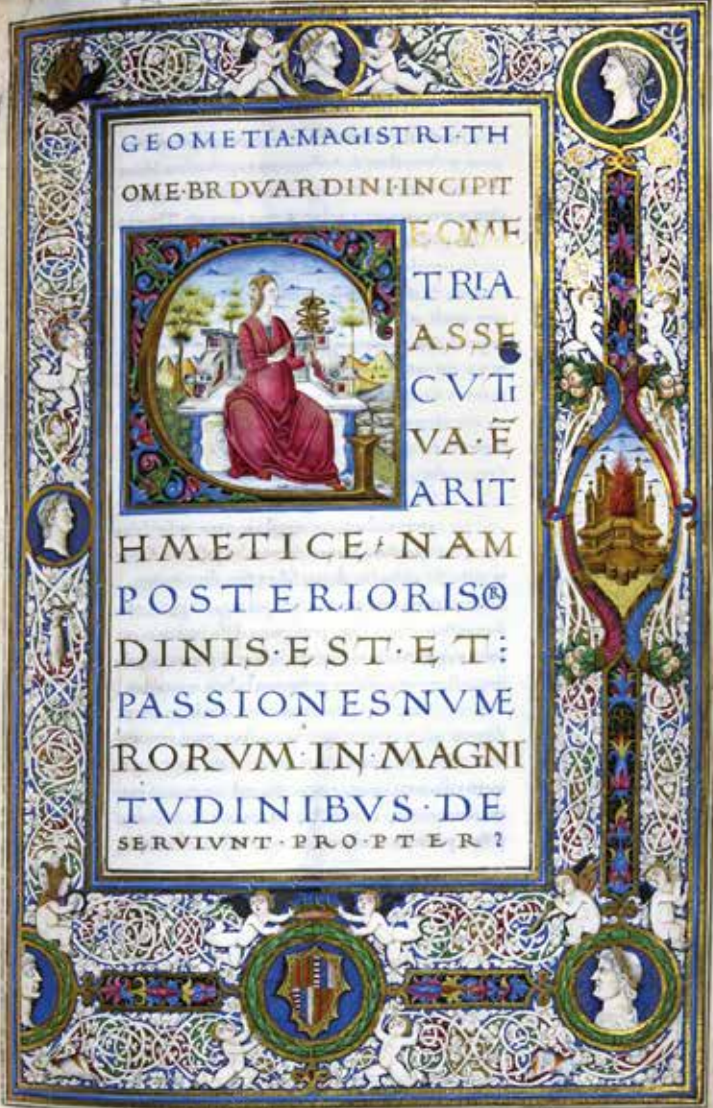 GEOMETIA·MAGISTRI·TH
OME·BRDVARDINI·INCIPIT
GEOME
TRIA
ASSE
CVTI
VA·Ē
ARIT
HMETICE · NAM
POSTERIORIS OR
DINIS·EST·ET:
PASSIONES NVME
RORVM·IN·MAGNI
TVDINIBVS·DE
SERVIVNT·PROPTER?